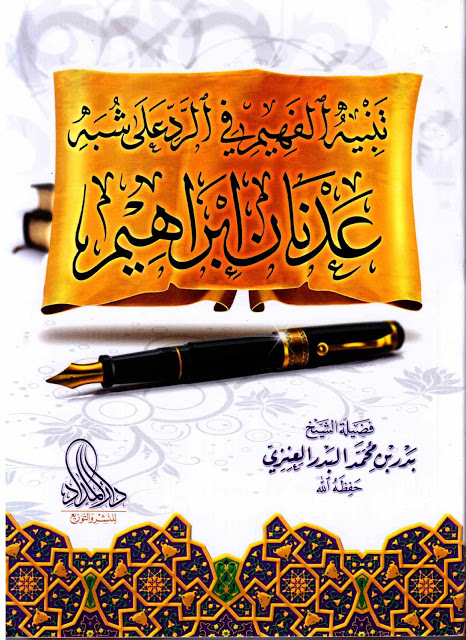 تَنْبِيهُ الفَهِيمِ فِي الرَّدِّ عَلَى شُبَهِ
عَدْنَان إِبْرَاهِيْم
فَضِيْلَة الشَّيْخ
بَدْر بْن مُحَمَّد البَدْر العِنِزِيّ
حَفِظَهُ اللَّه
دار المداد
للنشر والتوزيع